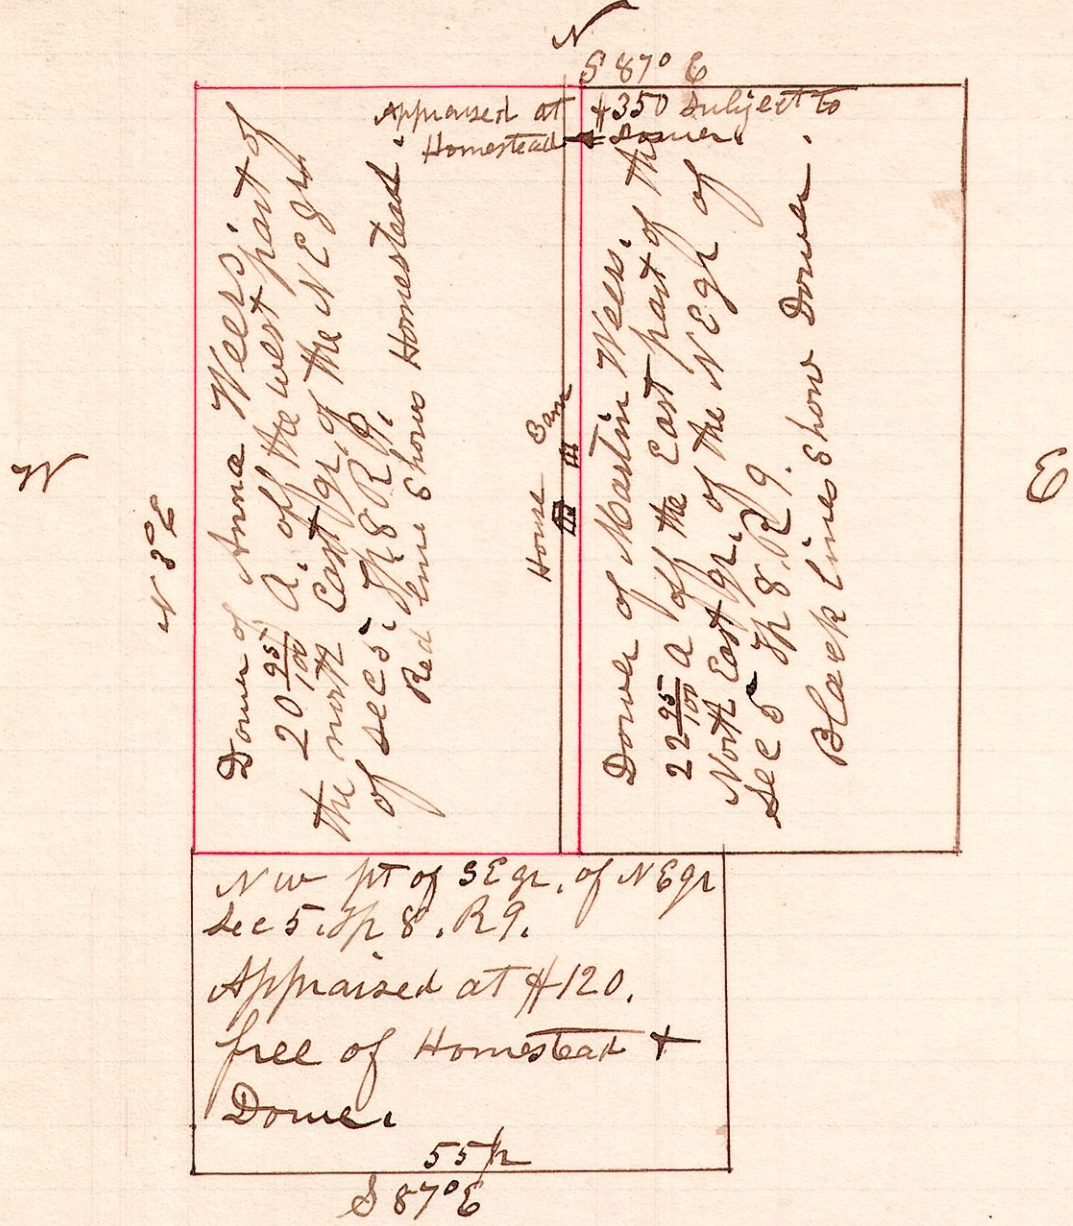 N
S 87° E
Appraised at $350 subject to
Homestead & Dower.
Dower of Anna Wees.
20 95/100 A. off the west part of
the north East qr. of the N E qr.
of sec 5. Tp 8 R 9.
Red line Shows Homestead.
House Barn
Dower of Martin Wees.
22 95/100 A off the East part of the
North East qr. of the N E qr of
Sec 5 Tp 8. R 9.
Black lines Show Dower.
W
E
N 3° E
N W pt of S E qr. of N E qr
Sec 5. Tp 8. R 9.
Appraised at $120.
free of Homestead +
Dower.
55 p
S 87° E